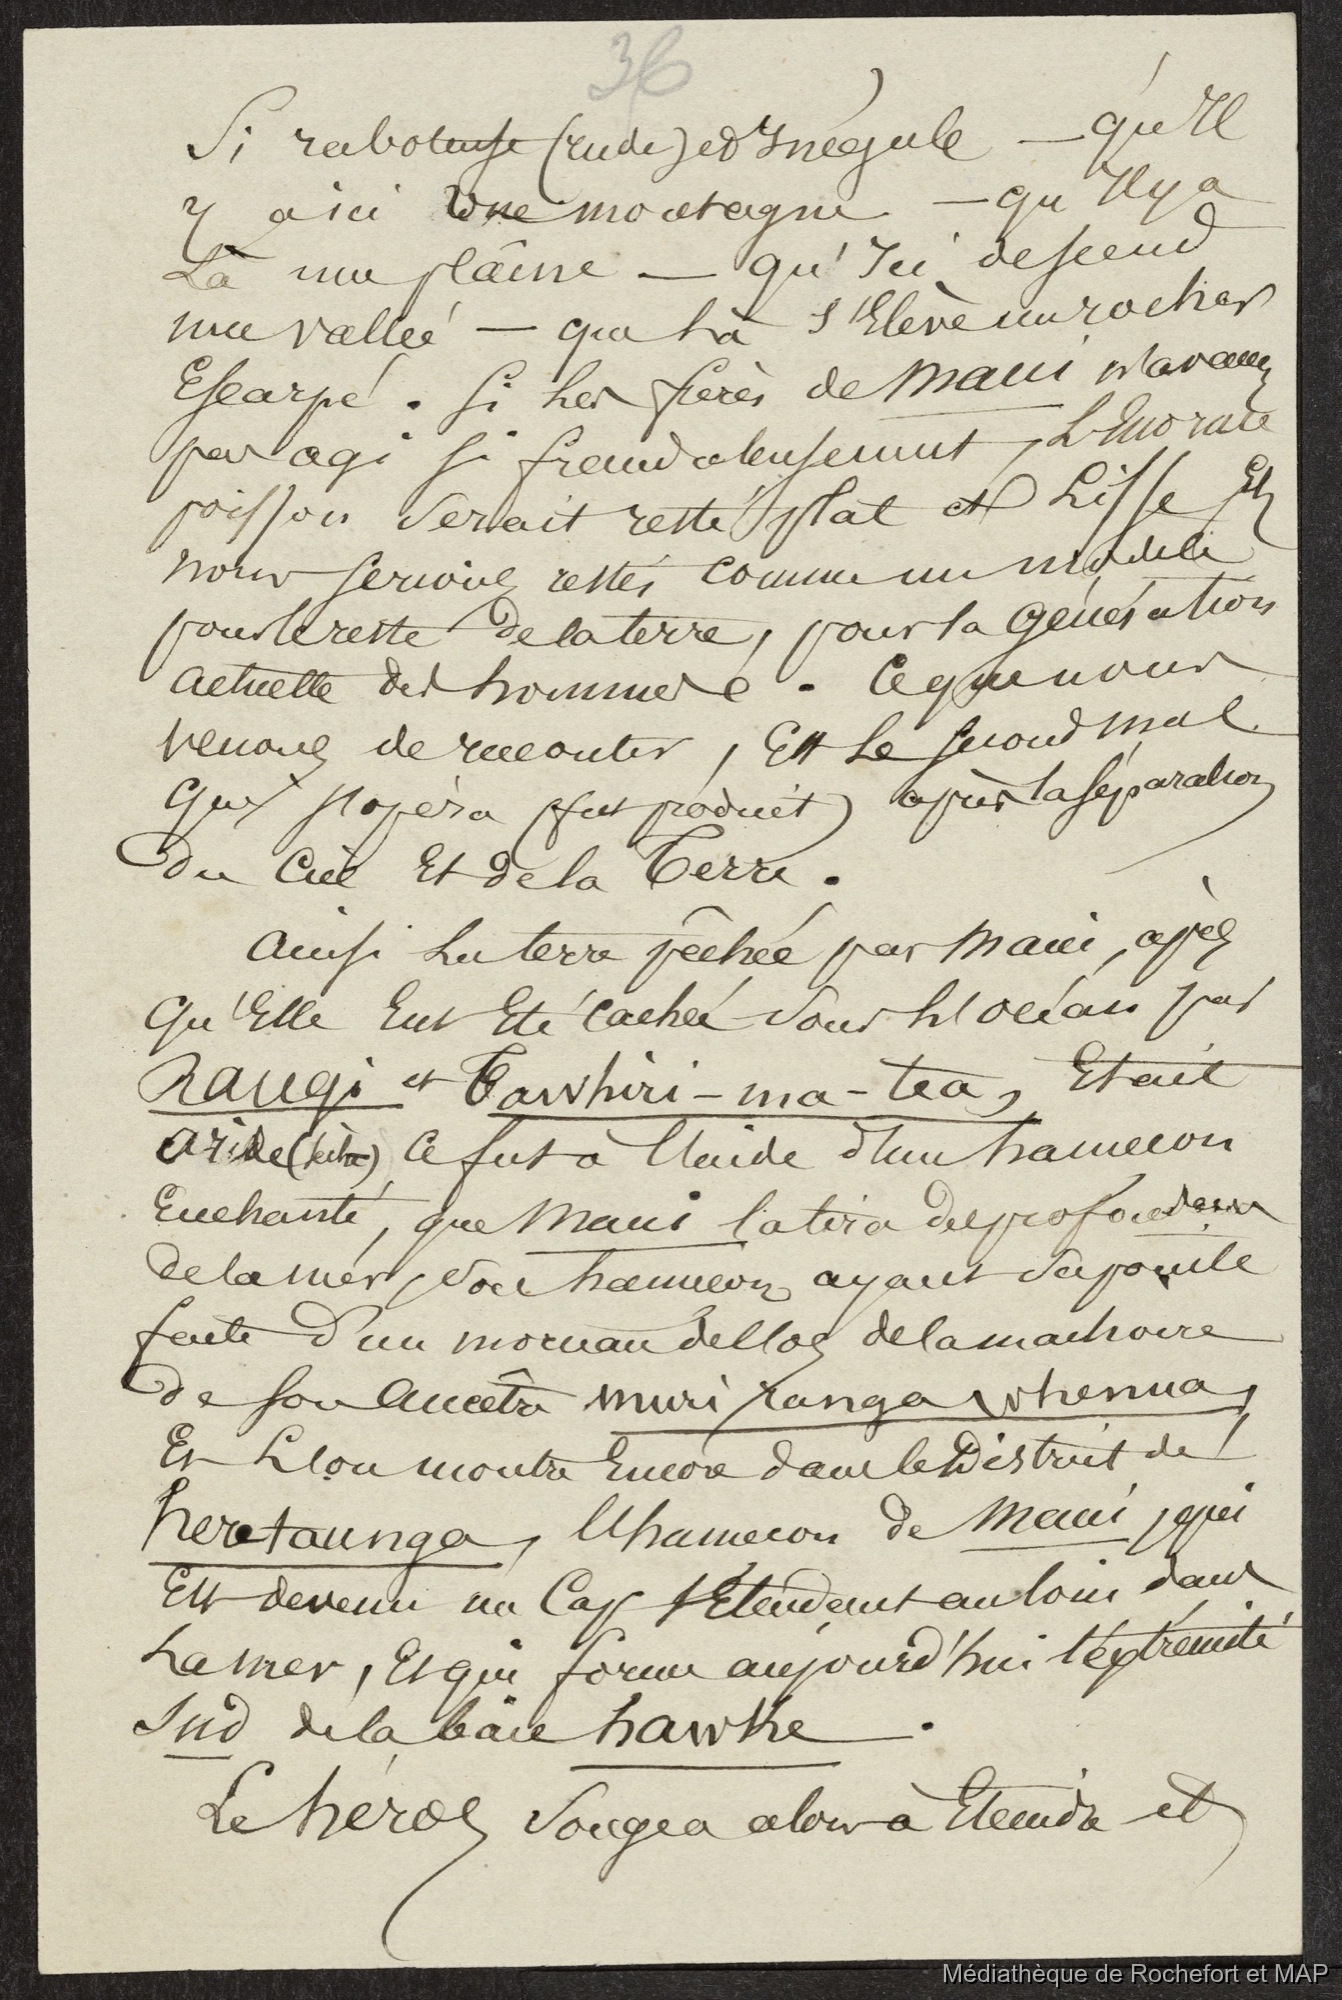 36
Si raboteuse (rude) et Inégale — qu'Il
y a ici une montagne — qu'Il y a
Là une plaîne — qu'Ici descend
une vallée — que Là s'Elève un rocher
Escarpé. Si Les frères de Maui n'avaient
pas agi si frauduleusement, L'Enorme
poisson serait resté plat et Lisse Et
nous serions restés comme un modèle
pour le reste de la terre, pour la génération
actuelle des hommes. Ce que nous
venons de raconter, Est Le second mal
qui s'opéra (fut produit) après la séparation
du Ciel Et de la Terre.
Ainsi La terre pêchée par Maui, après
qu'Elle Eut Eté cachée sous L'océan par
Rangi et Tawhiri-ma-tea, Etait
aride (sèche) Ce fut à l'aide d'un hamecon
Enchanté, que Maui la tira des profondeurs
de la mer, son hamecon ayant sa pointe
faite d'un morceau de l'os de la machoire
de son Ancêtre muri ranga whenua,
Et L'on montre Encore dans le District de
heretaunga, l'hamecon de Maui, qui
Est devenu un Cap s'Etendant au loin dans
La mer, Et qui forme aujourd'hui l'éxtrémité
Sud de la bâie hawke.
Le héros songea alors à Eteindre et
Médiathèque de Rochefort et MAP